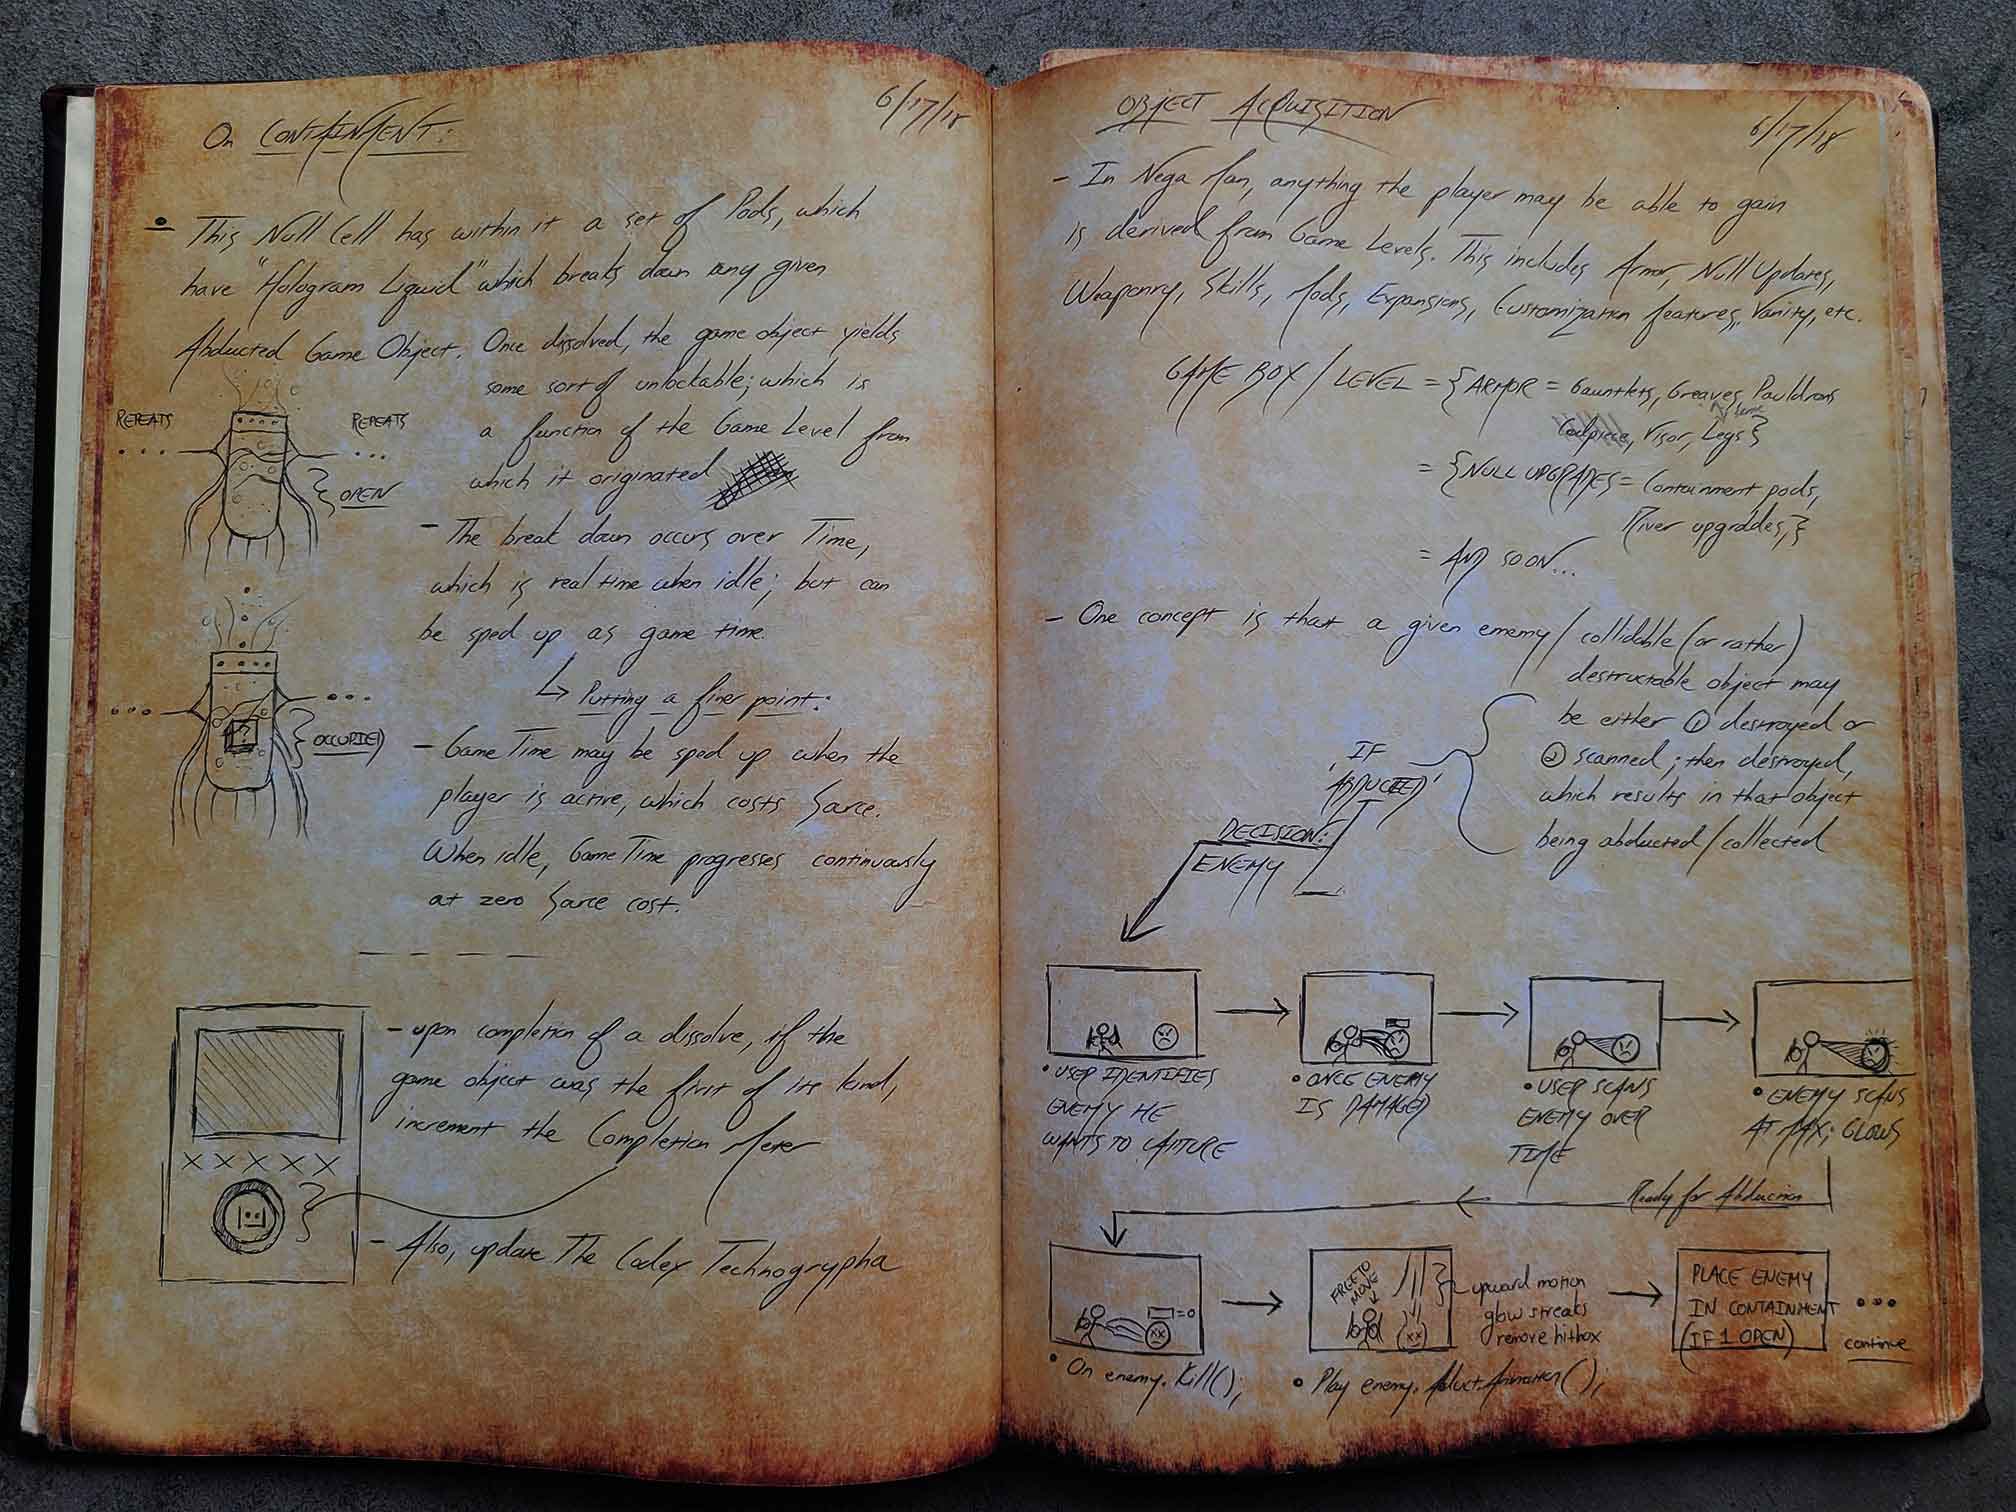 On CONTAINMENT:
6/17/18
This Null Cell has within it a set of Pods, which
have "Hologram Liquid" which breaks down any given
Abducted Game Object. Once dissolved, the game object yields
some sort of unlockable; which is
a function of the Game Level from
which it originated
REPEATS
REPEATS
OPEN
- The break down occurs over Time,
which is real time when idle; but can
be sped up as game time.
↳ Putting a finer point:
OCCUPIED
- Game Time may be sped up when the
player is active, which costs Source.
When idle, Game Time progresses continuously
at zero Source cost.
- upon completion of a dissolve, if the
game object was the first of its kind,
increment the Completion Meter
X X X X X
- Also, update The Codex Technogrypha
OBJECT ACQUISITION
6/17/18
- In Nega Man, anything the player may be able to gain
is derived from Game Levels. This includes Armor, Null Updates,
Weaponry, Skills, Mods, Expansions, Customization features, Vanity, etc.
GAME BOX / LEVEL = { ARMOR = Gauntlets, Greaves, Pauldrons
same
Codpiece, Visor, Legs }
= { NULL UPGRADES = Containment pods,
River upgrades, }
= AND SO ON...
- One concept is that a given enemy / collidable (or rather)
destructable object may
be either ① destroyed or
② scanned; then destroyed,
which results in that object
being abducted / collected
IF
'ABDUCTED'
DECISION:
ENEMY
• USER IDENTIFIES
ENEMY HE
WANTS TO CAPTURE
• ONCE ENEMY
IS DAMAGED
• USER SCANS
ENEMY OVER
TIME
• ENEMY SCANS
AT MAX; GLOWS
Ready for Abduction
=0
• On enemy.Kill();
FREE TO
MOVE
upward motion
glow streaks
remove hitbox
• Play enemy.AbductAnimation();
PLACE ENEMY
IN CONTAINMENT
(IF 1 OPEN)
...
continue